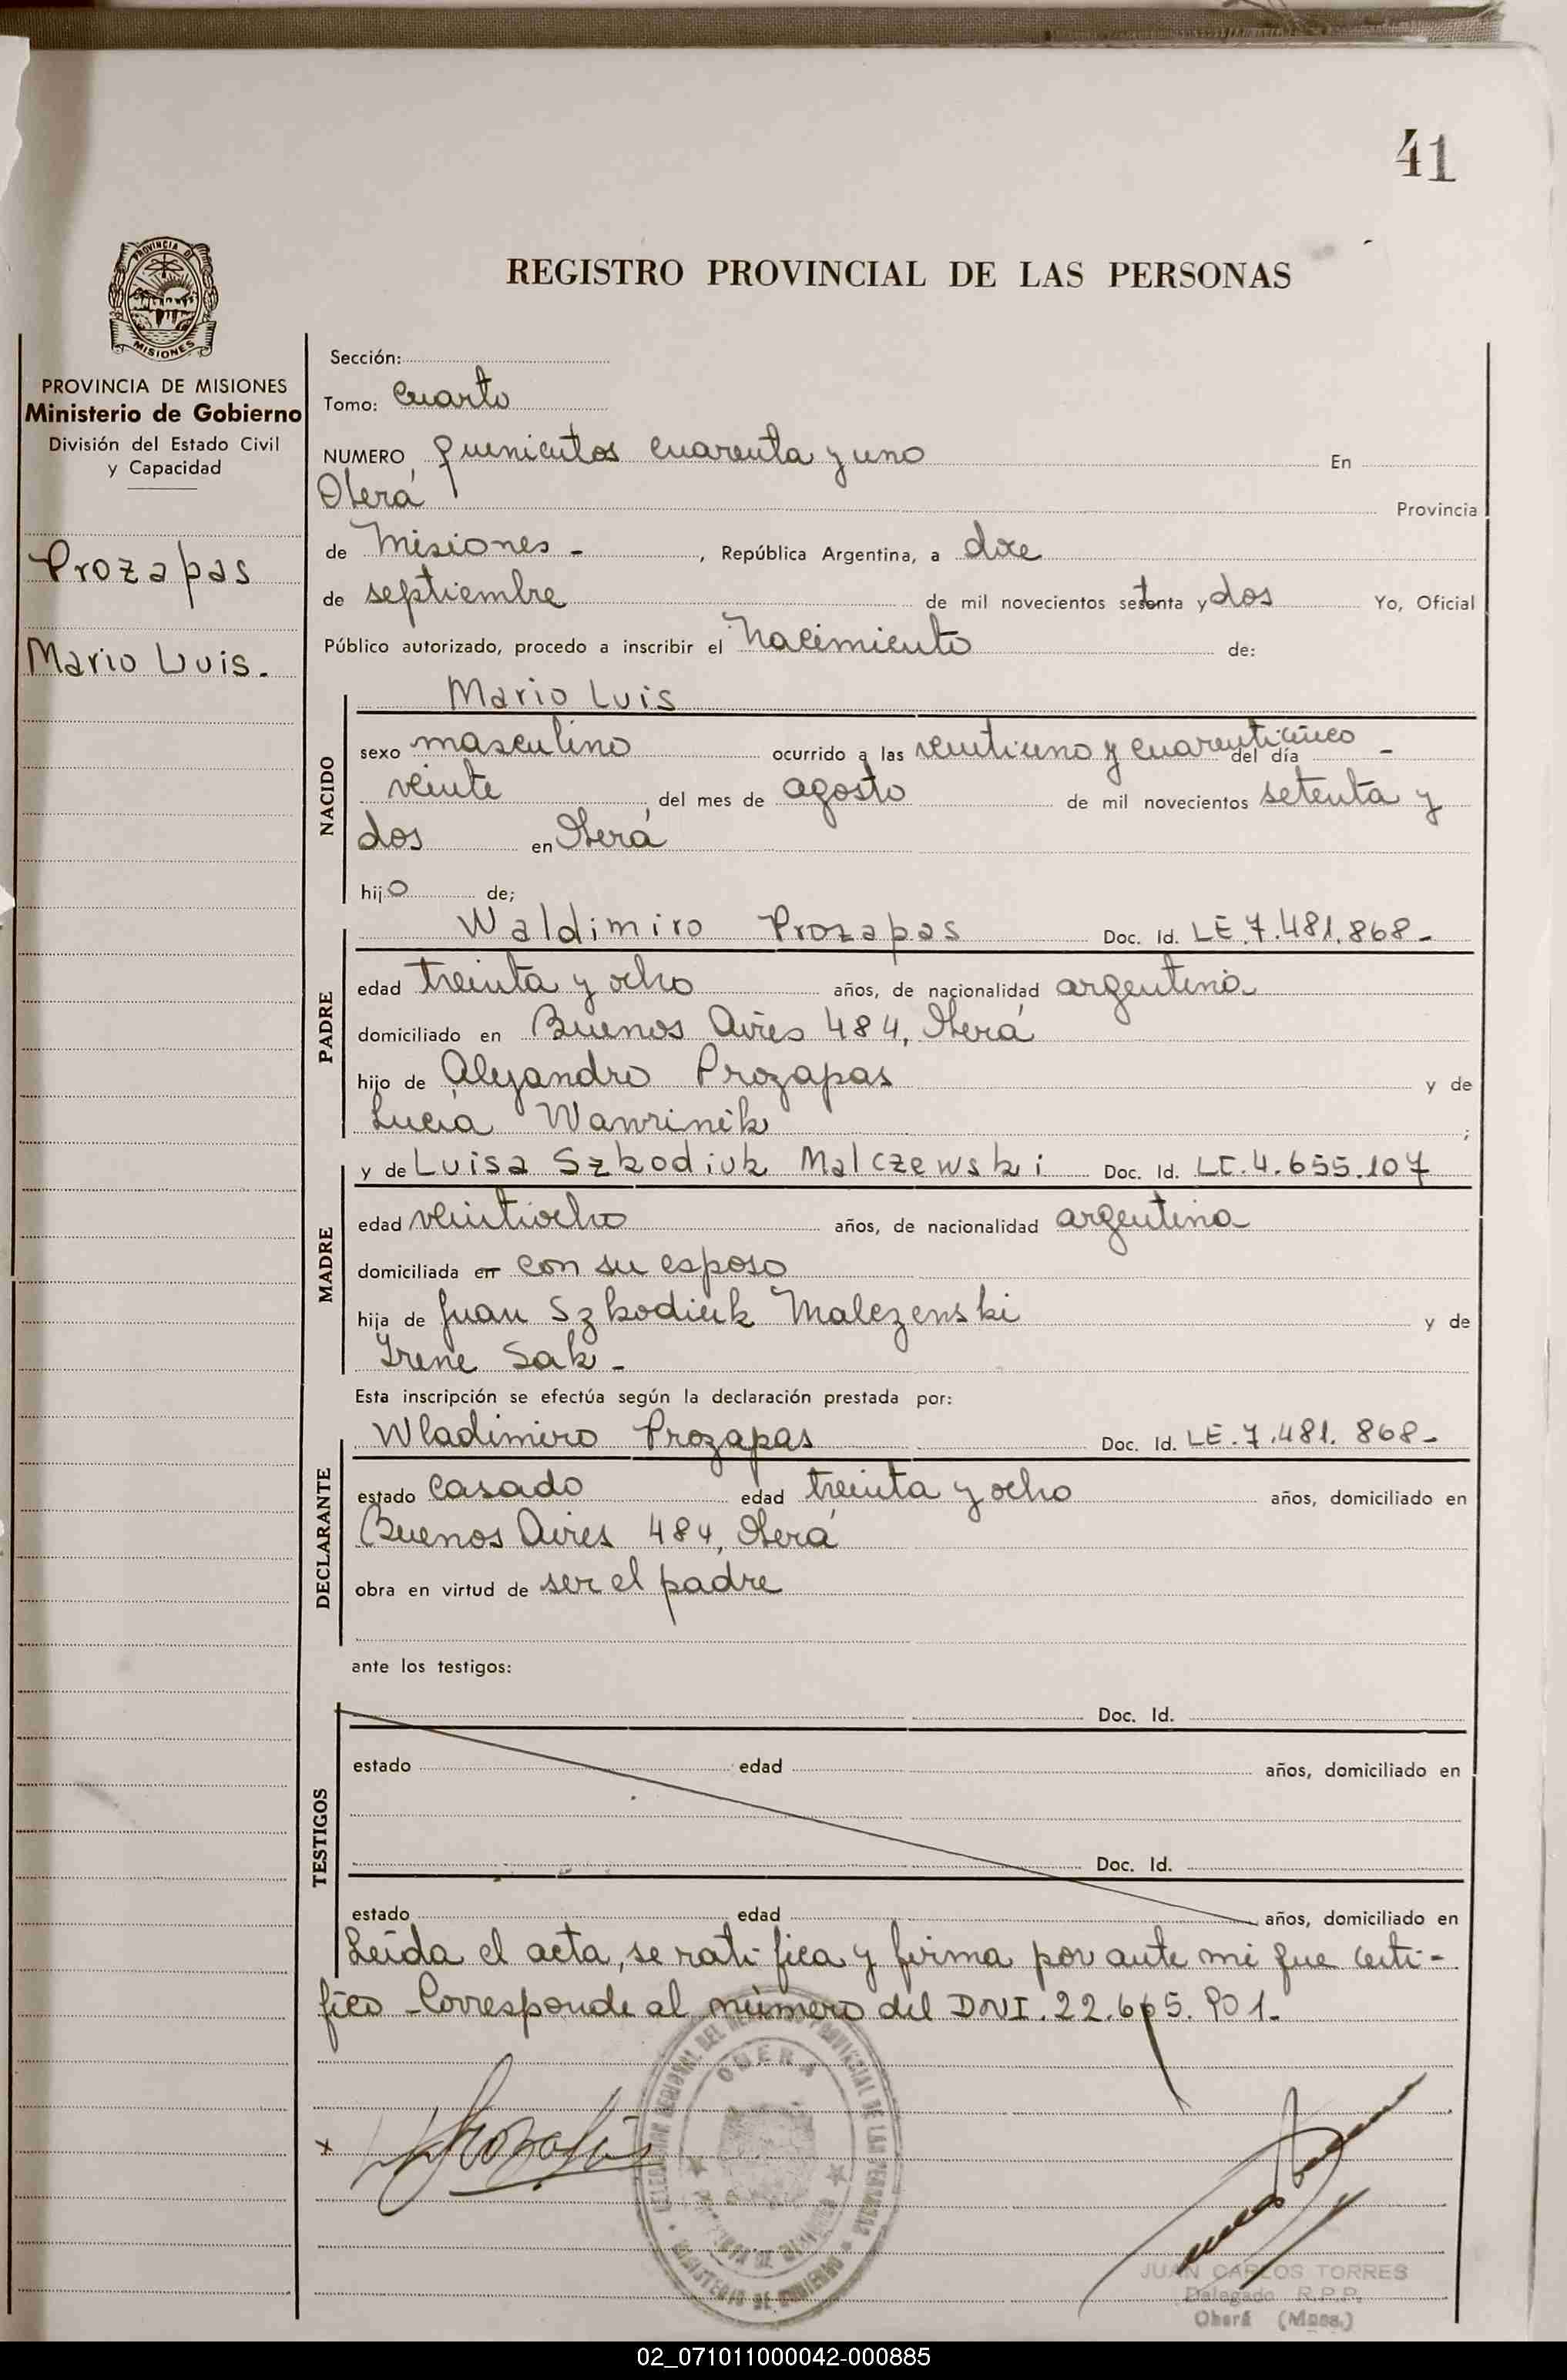 41
PROVINCIA DE
MISIONES
REGISTRO PROVINCIAL DE LAS PERSONAS
PROVINCIA DE MISIONES
Ministerio de Gobierno
División del Estado Civil
y Capacidad
Prozapas
Mario Luis.
Sección:
Tomo: Cuarto
NUMERO quinientos cuarenta y uno En
Oberá Provincia
de Misiones - , República Argentina, a doce
de septiembre de mil novecientos setenta y dos Yo, Oficial
Público autorizado, procedo a inscribir el Nacimiento de:
NACIDO
Mario Luis
sexo masculino ocurrido a las veintiuno y cuarenticinco - del día
veinte del mes de agosto de mil novecientos setenta y
dos en Oberá
hijo de;
PADRE
Waldimiro Prozapas Doc. Id. LE.7.481.868-
edad treinta y ocho años, de nacionalidad argentina
domiciliado en Buenos Aires 484, Oberá
hijo de Alejandro Prozapas y de
Lucía Wawrinik ;
MADRE
y de Luisa Szkodiuk Malczewski Doc. Id. LC.4.655.107
edad veintiocho años, de nacionalidad argentina
domiciliada en con su esposo
hija de Juan Szkodiuk Malczenski y de
Irene Sak -
Esta inscripción se efectúa según la declaración prestada por:
DECLARANTE
Wladimiro Prozapas Doc. Id. LE.7.481.868-
estado casado edad treinta y ocho años, domiciliado en
Buenos Aires 484, Oberá
obra en virtud de ser el padre
ante los testigos:
TESTIGOS
Doc. Id.
estado edad años, domiciliado en
Doc. Id.
estado edad años, domiciliado en
Leída el acta, se ratifica y firma por ante mi que certi-
fico - Corresponde al número del DNI. 22.665.901.
OBERA
MINISTERIO DE GOBIERNO
x
JUAN CARLOS TORRES
Delegado R.P.P.
Oberá (Mnes.)
02_071011000042-000885